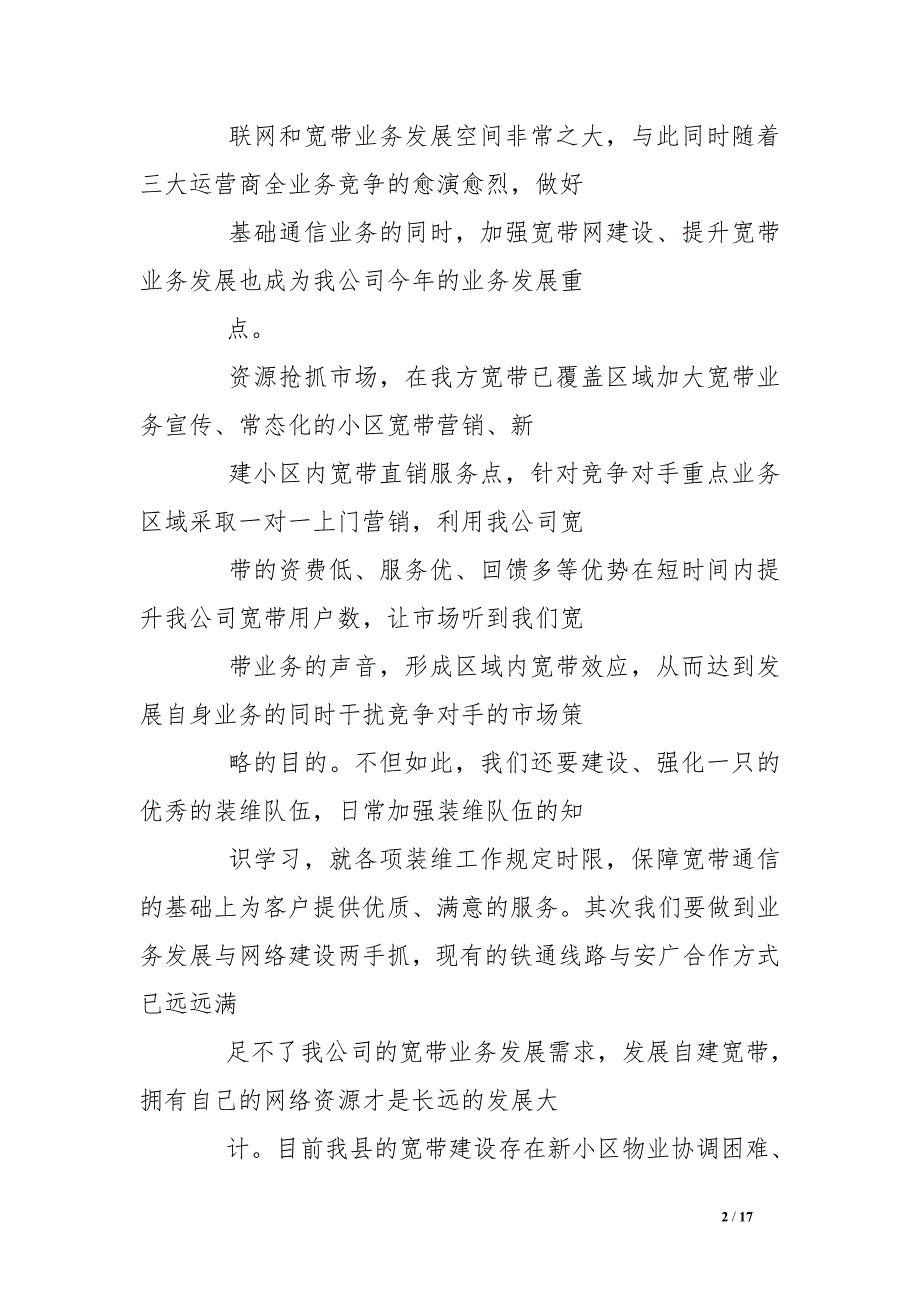 联网和宽带业务发展空间非常之大，与此同时随着
三大运营商全业务竞争的愈演愈烈，做好
基础通信业务的同时，加强宽带网建设、提升宽带
业务发展也成为我公司今年的业务发展重
点。
资源抢抓市场，在我方宽带已覆盖区域加大宽带业
务宣传、常态化的小区宽带营销、新
建小区内宽带直销服务点，针对竞争对手重点业务
区域采取一对一上门营销，利用我公司宽
带的资费低、服务优、回馈多等优势在短时间内提
升我公司宽带用户数，让市场听到我们宽
带业务的声音，形成区域内宽带效应，从而达到发
展自身业务的同时干扰竞争对手的市场策
略的目的。不但如此，我们还要建设、强化一只的
优秀的装维队伍，日常加强装维队伍的知
识学习，就各项装维工作规定时限，保障宽带通信
的基础上为客户提供优质、满意的服务。其次我们要做到业
务发展与网络建设两手抓，现有的铁通线路与安广合作方式
已远远满
足不了我公司的宽带业务发展需求，发展自建宽带，
拥有自己的网络资源才是长远的发展大
计。目前我县的宽带建设存在新小区物业协调困难、
2 / 17